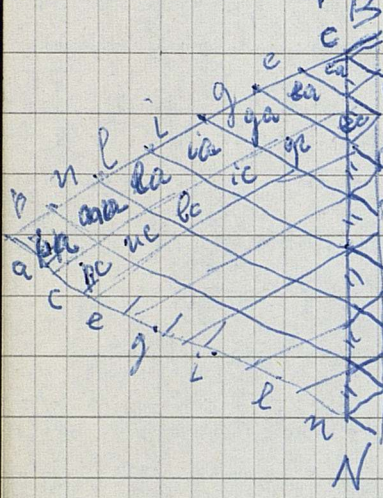 B
c
e
ca
g
ea
i
ga
l
ia
ge
n
la
ic
na
lc
nc
a
c
e
g
i
l
n
N